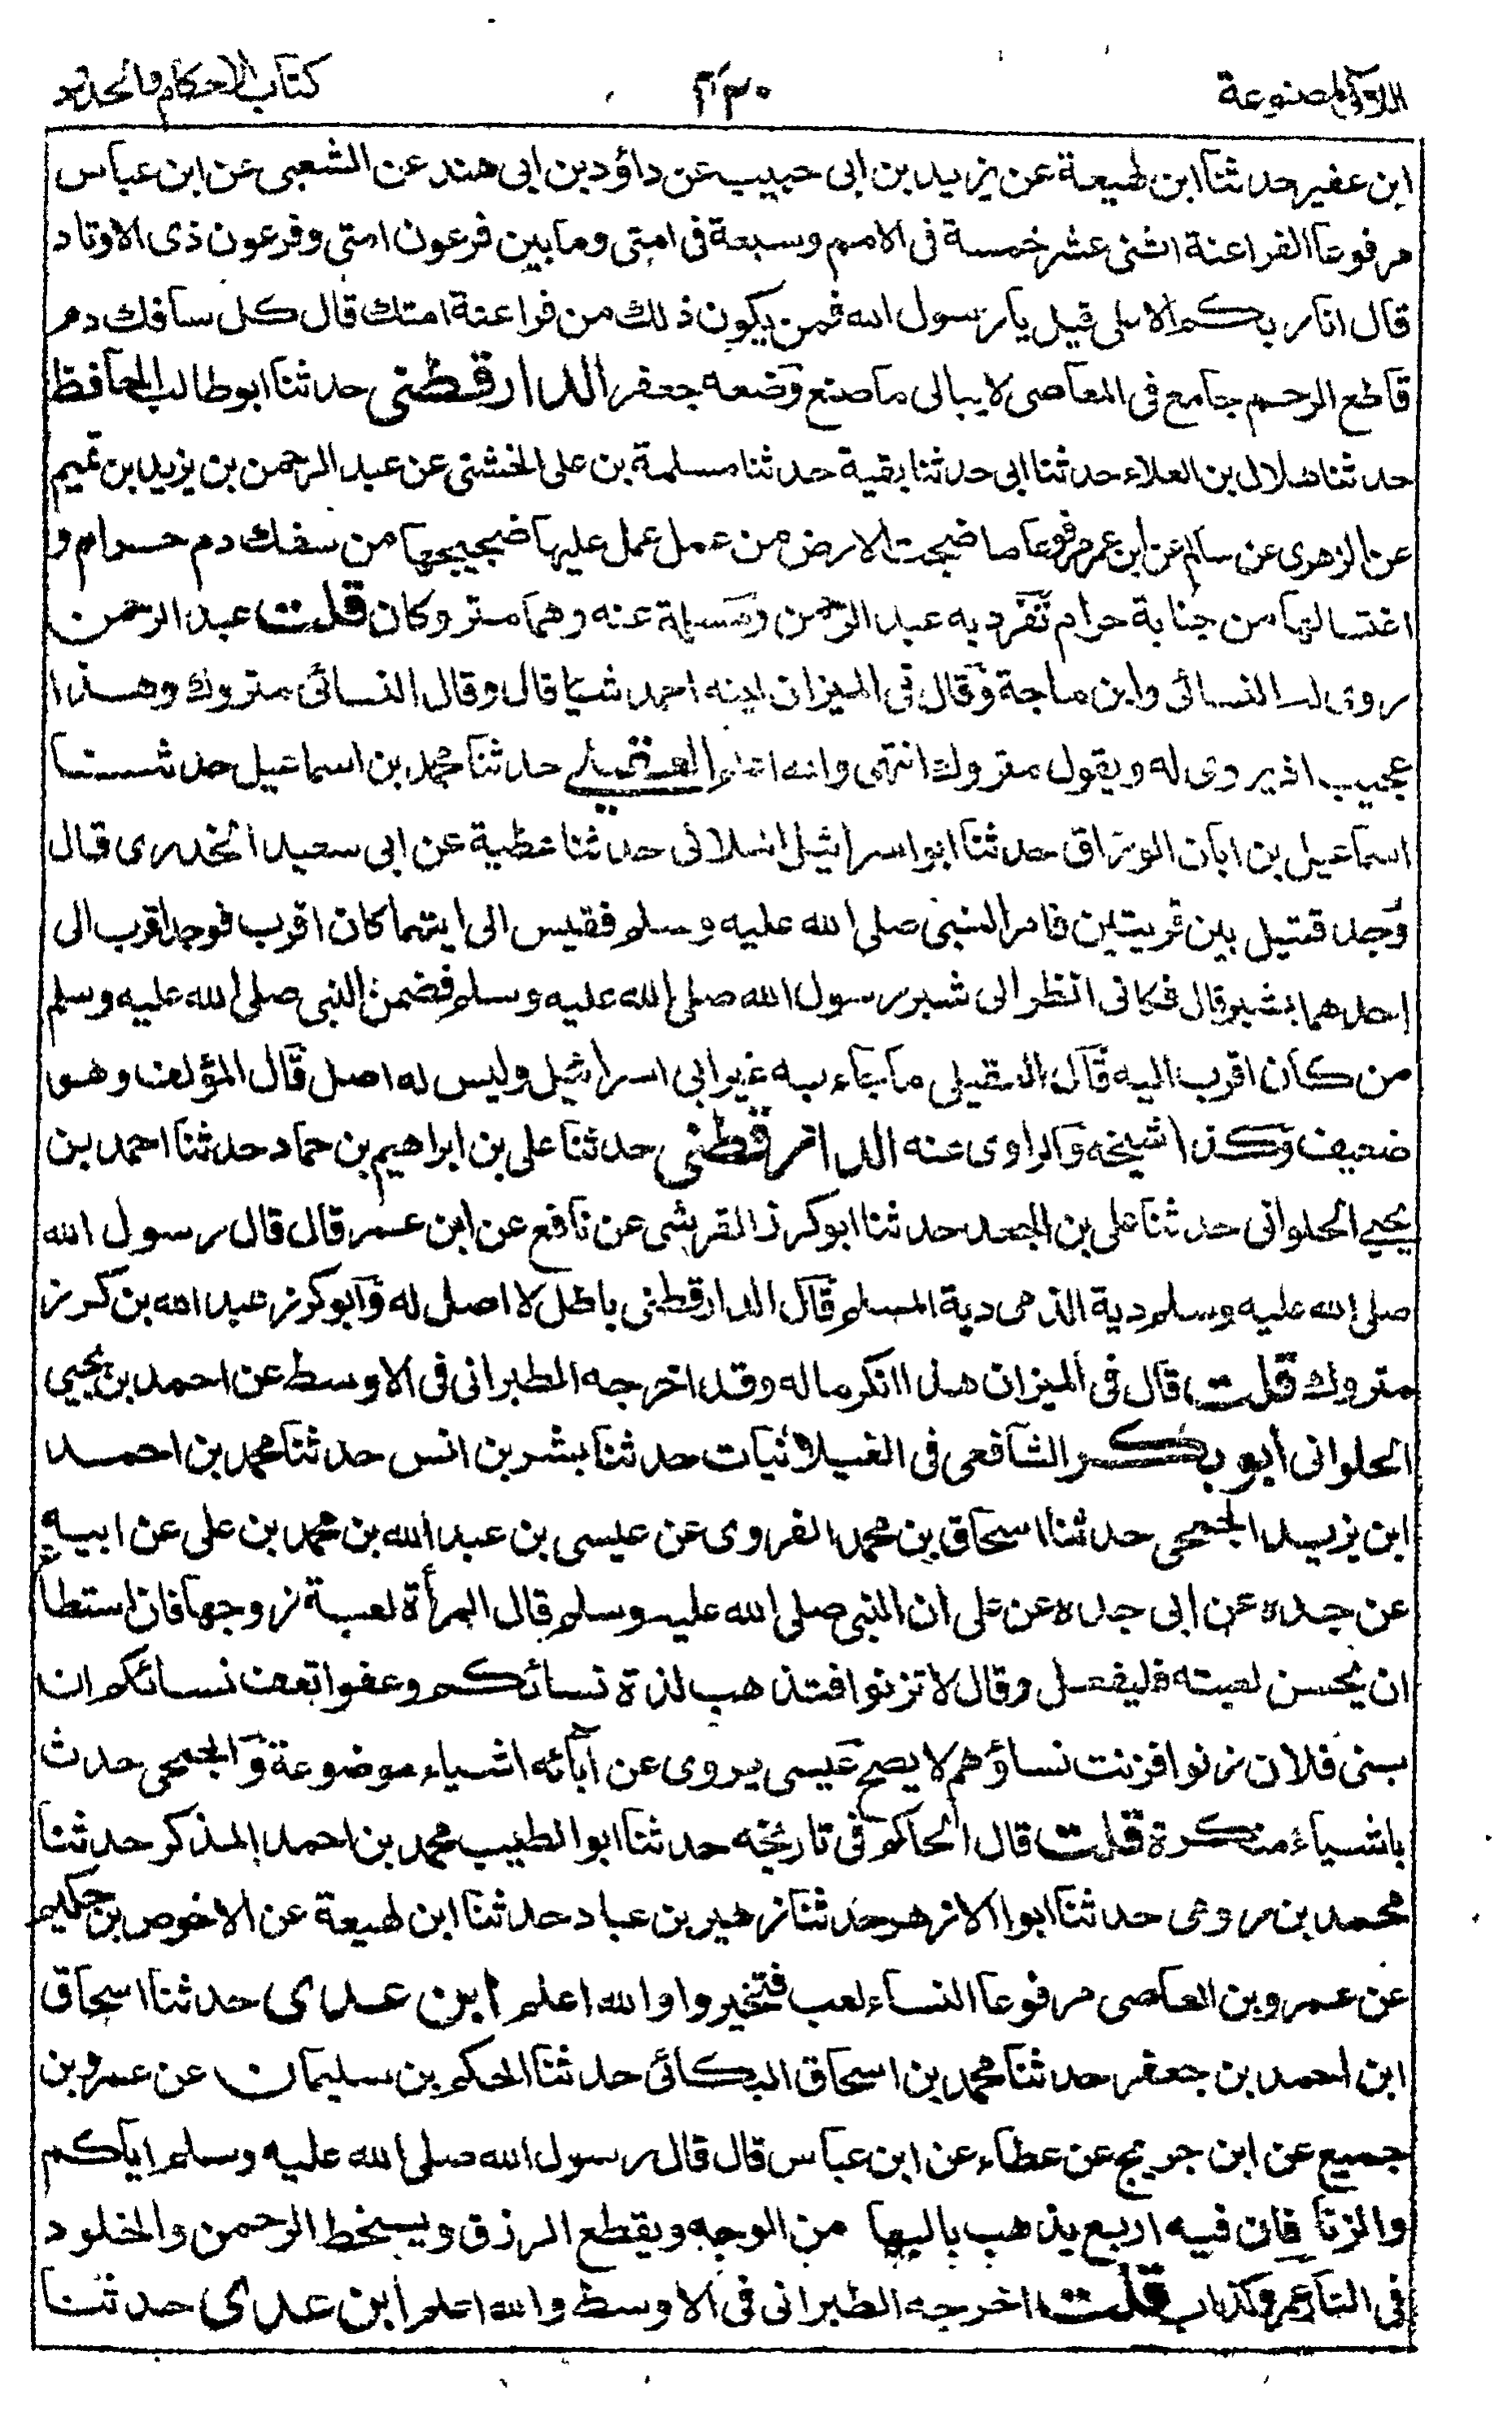 اللآلى المصنوعة
كتاب الاحكام والحدود
ابن عفير حدثنا ابن لهيعة عن يزيد بن ابى حبيب عن داؤد بن ابى هند عن الشعبى عن ابن عباس
مرفوعا الفراعنة اثنى عشر خمسة فى الامم وسبعة فى امتى وما بين فرعون امتى وفرعون ذى الاوتاد
قال انا ربكم الاعلى قيل يا رسول الله فمن يكون ذلك من فراعنة امتك قال كل سافك دم
قاطع الرحم جامع فى المعاصى لا يبالى ما صنع وضعه جعفر الدارقطنى حدثنا ابو طالب الحافظ
حدثنا هلال بن العلاء حدثنا ابى حدثنا بقية حدثنا مسلمة بن على الخشنى عن عبد الرحمن بن يزيد بن تميم
عن الزهرى عن سالم عن ابن عمر مرفوعا ما ضجت الارض من عمل عمل عليها ضجيجها من سفك دم حرام و
اغتسالها من جنابة حرام تفرد به عبد الرحمن ومسلمة عنه وهما متروكان قلت عبد الرحمن
روى له النسائى وابن ماجة وقال فى الميزان احمد شيأ قال وقال النسائى متروك وهذا
عجيب اذ يروى له ويقول متروك انتهى والله اعلم العقيلى حدثنا محمد بن اسماعيل حدثنا
اسماعيل بن ابان الوراق حدثنا ابو اسرائيل الملائى حدثنا عطية عن ابى سعيد الخدرى قال
وجد قتيل بين قريتين فامر النبى صلى الله عليه وسلم فقيس الى ايتهما كان اقرب فوجد اقرب الى
احدهما بشبر قال فكانى انظر الى شبر رسول الله صلى الله عليه وسلم فضمن النبى صلى الله عليه وسلم
من كان اقرب اليه قال العقيلى ما جاء به غير ابى اسرائيل وليس له اصل قال المؤلف وهو
ضعيف وكذا شيخه والراوى عنه الدارقطنى حدثنا على بن ابراهيم بن حماد حدثنا احمد بن
يحيى الحلوانى حدثنا على بن الجعد حدثنا ابو كرز القرشى عن نافع عن ابن عمر قال قال رسول الله
صلى الله عليه وسلم دية الذمى دية المسلم قال الدارقطنى باطل لا اصل له وابو كرز عبد الله بن كرز
متروك قلت قال فى الميزان هذا انكر ماله وقد اخرجه الطبرانى فى الاوسط عن احمد بن يحيى
الحلوانى أبو بكر الشافعى فى الغيلانيات حدثنا بشر بن انس حدثنا محمد بن احمد
ابن يزيد الجمحى حدثنا اسحاق بن محمد الفروى عن عيسى بن عبد الله بن محمد بن على عن ابيه
عن جده عن ابى جده عن على ان النبى صلى الله عليه وسلم قال المرأة لعبة زوجها فان استطاع
ان يحسن لعبته فليفعل وقال لا تزنوا فتذهب لذة نسائكم وعفوا تعف نسائكم ان
بنى فلان زنوا فزنت نساؤهم لا يصح عيسى يروى عن آبائه اشياء موضوعة والجمحى حدث
باشياء منكرة قلت قال الحاكم فى تاريخه حدثنا ابو الطيب محمد بن احمد المذكر حدثنا
محمد بن رومى حدثنا ابو الازهر حدثنا زهير بن عباد حدثنا ابن لهيعة عن الاخوص بن حكيم
عن عمرو بن العاصى مرفوعا النساء لعب فتخيروا والله اعلم ابن عدى حدثنا اسحاق
ابن احمد بن جعفر حدثنا محمد بن اسحاق البكائى حدثنا الحكم بن سليمان عن عمرو بن
جميع عن ابن جريج عن عطاء عن ابن عباس قال قال رسول الله صلى الله عليه وسلم اياكم
والزنا فان فيه اربع يذهب بالبها من الوجه ويقطع الرزق ويسخط الرحمن والخلود
فى النار عمرو كذاب قلت اخرجه الطبرانى فى الاوسط والله اعلم ابن عدى حدثنا